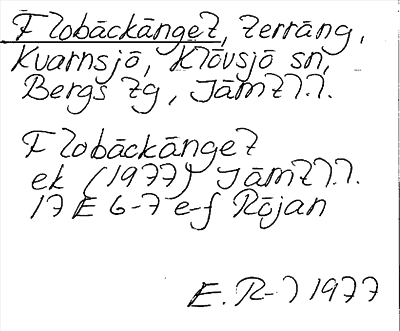 Flobäckänget, terräng,
Kvarnsjö, Klövsjö sn,
Bergs tg, Jämtl.l.
Flobäckänget
ek (1977) Jämtl.l.
17 E 6-7 e-f Röjan
E. R-l 1977